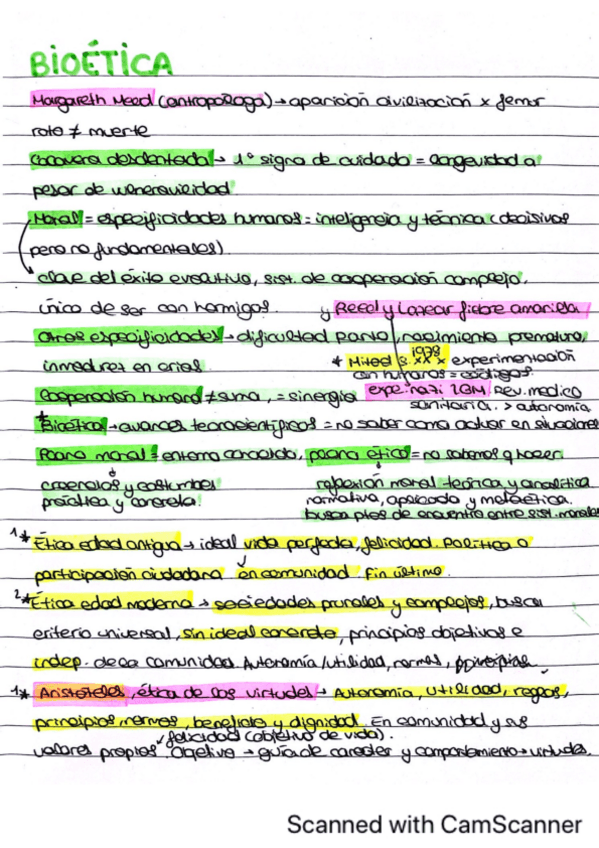 BIOÉTICA
Margareth Meed (antropóloga) → aparición civilización x femur
roto ≠ muerte
Cadavera desdentada → 1º signo de cuidado = longevidad a
pesar de vulnerabilidad
Moral = especificidades humanas = inteligencia y técnica (decisivas
pero no fundamentales)
clave del éxito evolutivo, sist. de cooperación complejo.
único de ser con hormigas. y Reed y Lazear fiebre amarilla.
Otras especificidades → dificultad parto, nacimiento prematuro,
inmadurez en crias. * Mitad s. XX experimentación
1978
con humanos = códigos.
Cooperación humana ≠ suma, = sinergia expe. nazi IGM Rev. medico
sanitaria. > autonomía
* Bioética → avances tecnocientíficos = no saber como actuar en situaciones
Plano moral = entorno conocido, plano ético = no sabemos q hacer.
creencias y costumbres reflexión moral teórica y analítica
práctica y concreta. normativa, aplicada y metaética.
busca ptos de encuentro entre sist. morales
1* Ética edad antigua → ideal vida perfecta, felicidad. Política o
participación ciudadana en comunidad. Fin último.
2* Ética edad moderna → sociedades plurales y complejas, busca
criterio universal, sin ideal concreto, principios objetivos e
indep. de la comunidad. Autonomía/utilidad, normas, principios
1* Aristóteles, ética de las virtudes → Autonomía, utilidad, reglas,
principios normas, beneficio y dignidad. En comunidad y sus
felicidad (objetivo de vida).
valores propios. Objetivo → guía de caracter y comportamiento → virtudes.
Scanned with CamScanner